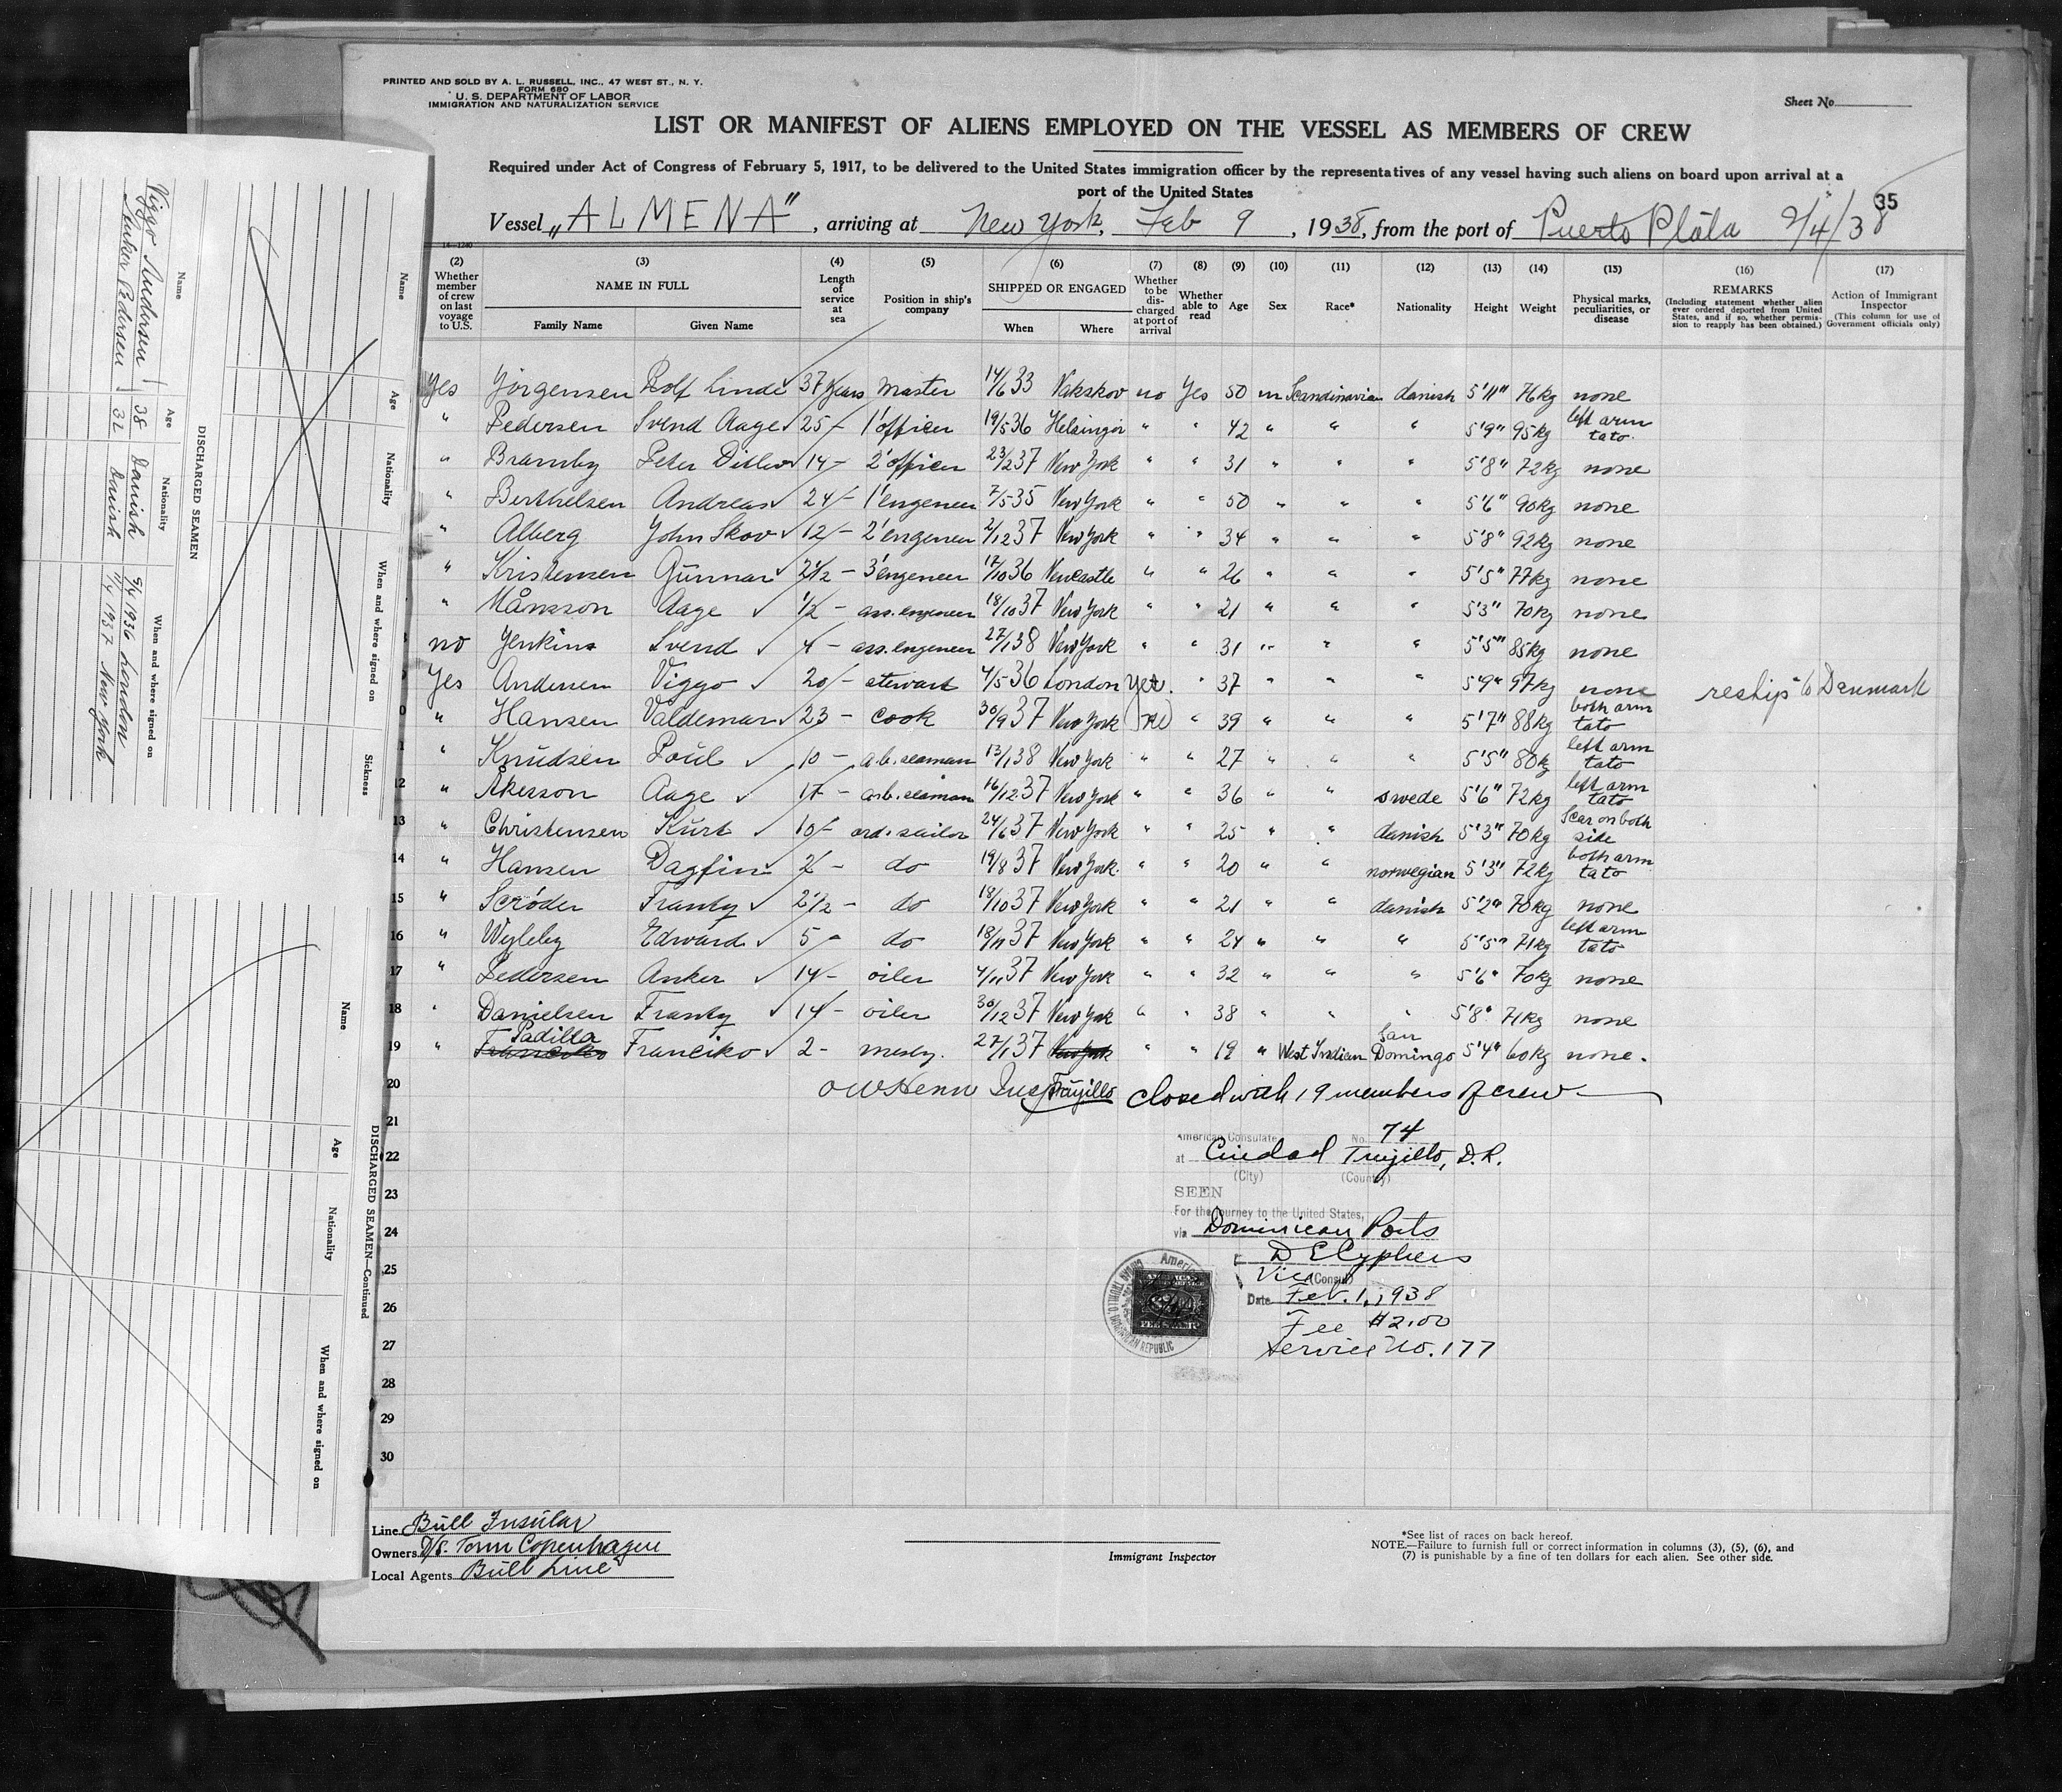 PRINTED AND SOLD BY A. L. RUSSELL, INC., 47 WEST ST., N. Y.
FORM 680
U. S. DEPARTMENT OF LABOR
IMMIGRATION AND NATURALIZATION SERVICE
Sheet No.
LIST OR MANIFEST OF ALIENS EMPLOYED ON THE VESSEL AS MEMBERS OF CREW
Required under Act of Congress of February 5, 1917, to be delivered to the United States immigration officer by the representatives of any vessel having such aliens on board upon arrival at a
port of the United States
35
Vessel "ALMENA", arriving at New York, Feb 9, 1938, from the port of Puerto Plata 2/4/38
14—1240
(2) (3) (4) (5) (6) (7) (8) (9) (10) (11) (12) (13) (14) (15) (16) (17)
Whether member of crew on last voyage to U.S. NAME IN FULL Family Name Given Name Length of service at sea Position in ship's company SHIPPED OR ENGAGED When Where Whether to be discharged at port of arrival Whether able to read Age Sex Race* Nationality Height Weight Physical marks, peculiarities, or disease REMARKS (Including statement whether alien ever ordered deported from United States, and if so, whether permission to reapply has been obtained.) Action of Immigrant Inspector (This column for use of Government officials only)
Yes Jörgensen Rolf Linde 37 years master 14/6 33 Nakskov no Yes 50 m Scandinavian danish 5'11" 76kg none
" Pedersen Svend Aage 25 - 1' officer 19/5 36 Helsingör " " 42 " " " 5'9" 95kg left arm tato
" Bramby Peter Ditlev 14 - 2' officer 23/2 37 New York " " 31 " " " 5'8" 72kg none
" Berthelsen Andreas 24 - 1' engeneer 7/5 35 New York " " 50 " " " 5'6" 90kg none
" Alberg John Skov 12 - 2' engeneer 2/12 37 New York " " 34 " " " 5'8" 92kg none
" Kristensen Gunnar 2 1/2 - 3' engeneer 17/10 36 Newcastle " " 26 " " " 5'5" 77kg none
" Månsson Aage 1/2 - ass. engeneer 18/10 37 New York " " 21 " " " 5'3" 70kg none
no Jenkins Svend 4 - ass. engeneer 27/1 38 New York " " 31 " " " 5'5" 85kg none
Yes Andersen Viggo 20 - stewart 4/5 36 London Yes. " 37 " " " 5'9" 97kg none reship to Denmark
" Hansen Valdemar 23 - cook 30/9 37 New York no " 39 " " " 5'7" 88kg both arm tato
" Knudsen Poul 10 - a.b. seaman 13/1 38 New York " " 27 " " " 5'5" 80kg left arm tato
12 " Åkesson Aage 17 - a.b. seaman 16/12 37 New York " " 36 " " swede 5'6" 72kg left arm tato
13 " Christensen Kurt 10 - ord. sailor 24/6 37 New York " " 25 " " danish 5'3" 70kg Scar on both side
14 " Hansen Dagfin 2 - do 19/8 37 New York " " 20 " " norwegian 5'3" 72kg both arm tato
15 " Scröder Frantz 2 1/2 - do 18/10 37 New York " " 21 " " danish 5'2" 70kg none
16 " Wyleby Edward 5 - do 18/11 37 New York " " 24 " " " 5'5" 71kg left arm tato
17 " Pedersen Anker 14 - oiler 4/11 37 New York " " 32 " " " 5'6" 70kg none
18 " Danielsen Frantz 14 - oiler 30/12 37 New York " " 38 " " " 5'8" 71kg none
19 " Padilla Franciko 2 - mesby. 27/1 37 New York " " 19 " West Indian San Domingo 5'4" 60kg none.
20 Trujillo Closed with 19 members of crew
21
22
23
24
25
26
27
28
29
30
American Consulate No. 74
at Ciudad Trujillo, D.R.
(City) (Country)
SEEN
For the journey to the United States,
via Dominican Ports
D E Cyphers
Vice (Consul)
Date Feb. 1, 1938
Fee $2.00
Service No. 177
DOMINICAN REPUBLIC
FEE STAMP
Line Bull Insular
Owners D/S. Torm Copenhagen
Local Agents Bull Line
Immigrant Inspector
*See list of races on back hereof.
NOTE.—Failure to furnish full or correct information in columns (3), (5), (6), and
(7) is punishable by a fine of ten dollars for each alien. See other side.
DISCHARGED SEAMEN
Name Age Nationality When and where signed on
Viggo Andersen 38 Danish 5/4 1936 London
Anker Pedersen 32 Danish 11/4 1937 New York
Name Age Nationality When and where signed on Sickness
DISCHARGED SEAMEN—Continued
Name Age Nationality When and where signed on